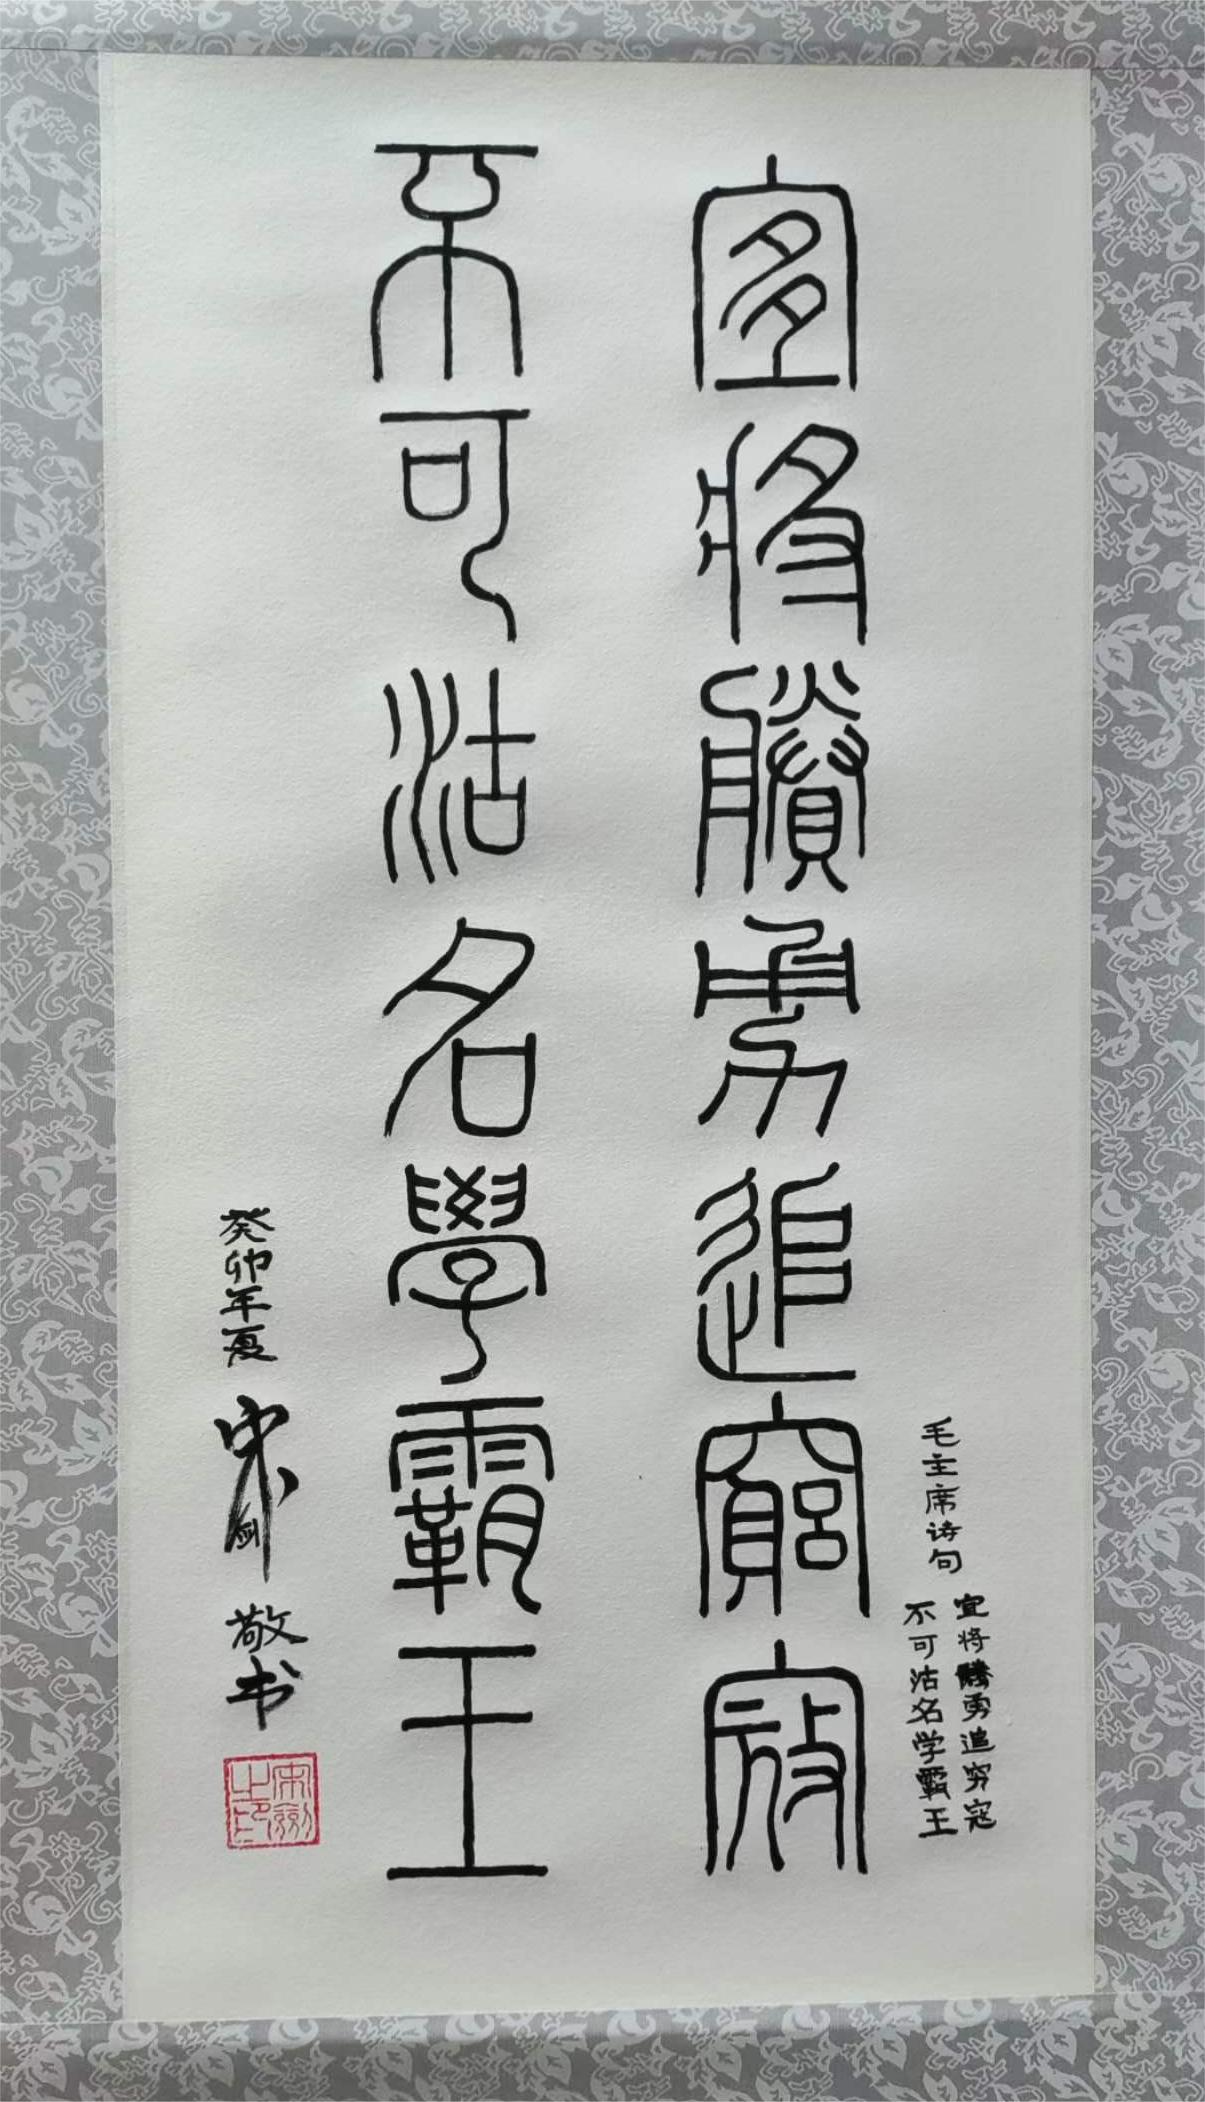 毛主席诗句
宜将賸勇追穷寇
不可沽名学霸王
宜將賸勇追窮寇
不可沽名學霸王
癸卯年夏 宋剑 敬书
宋劍之印